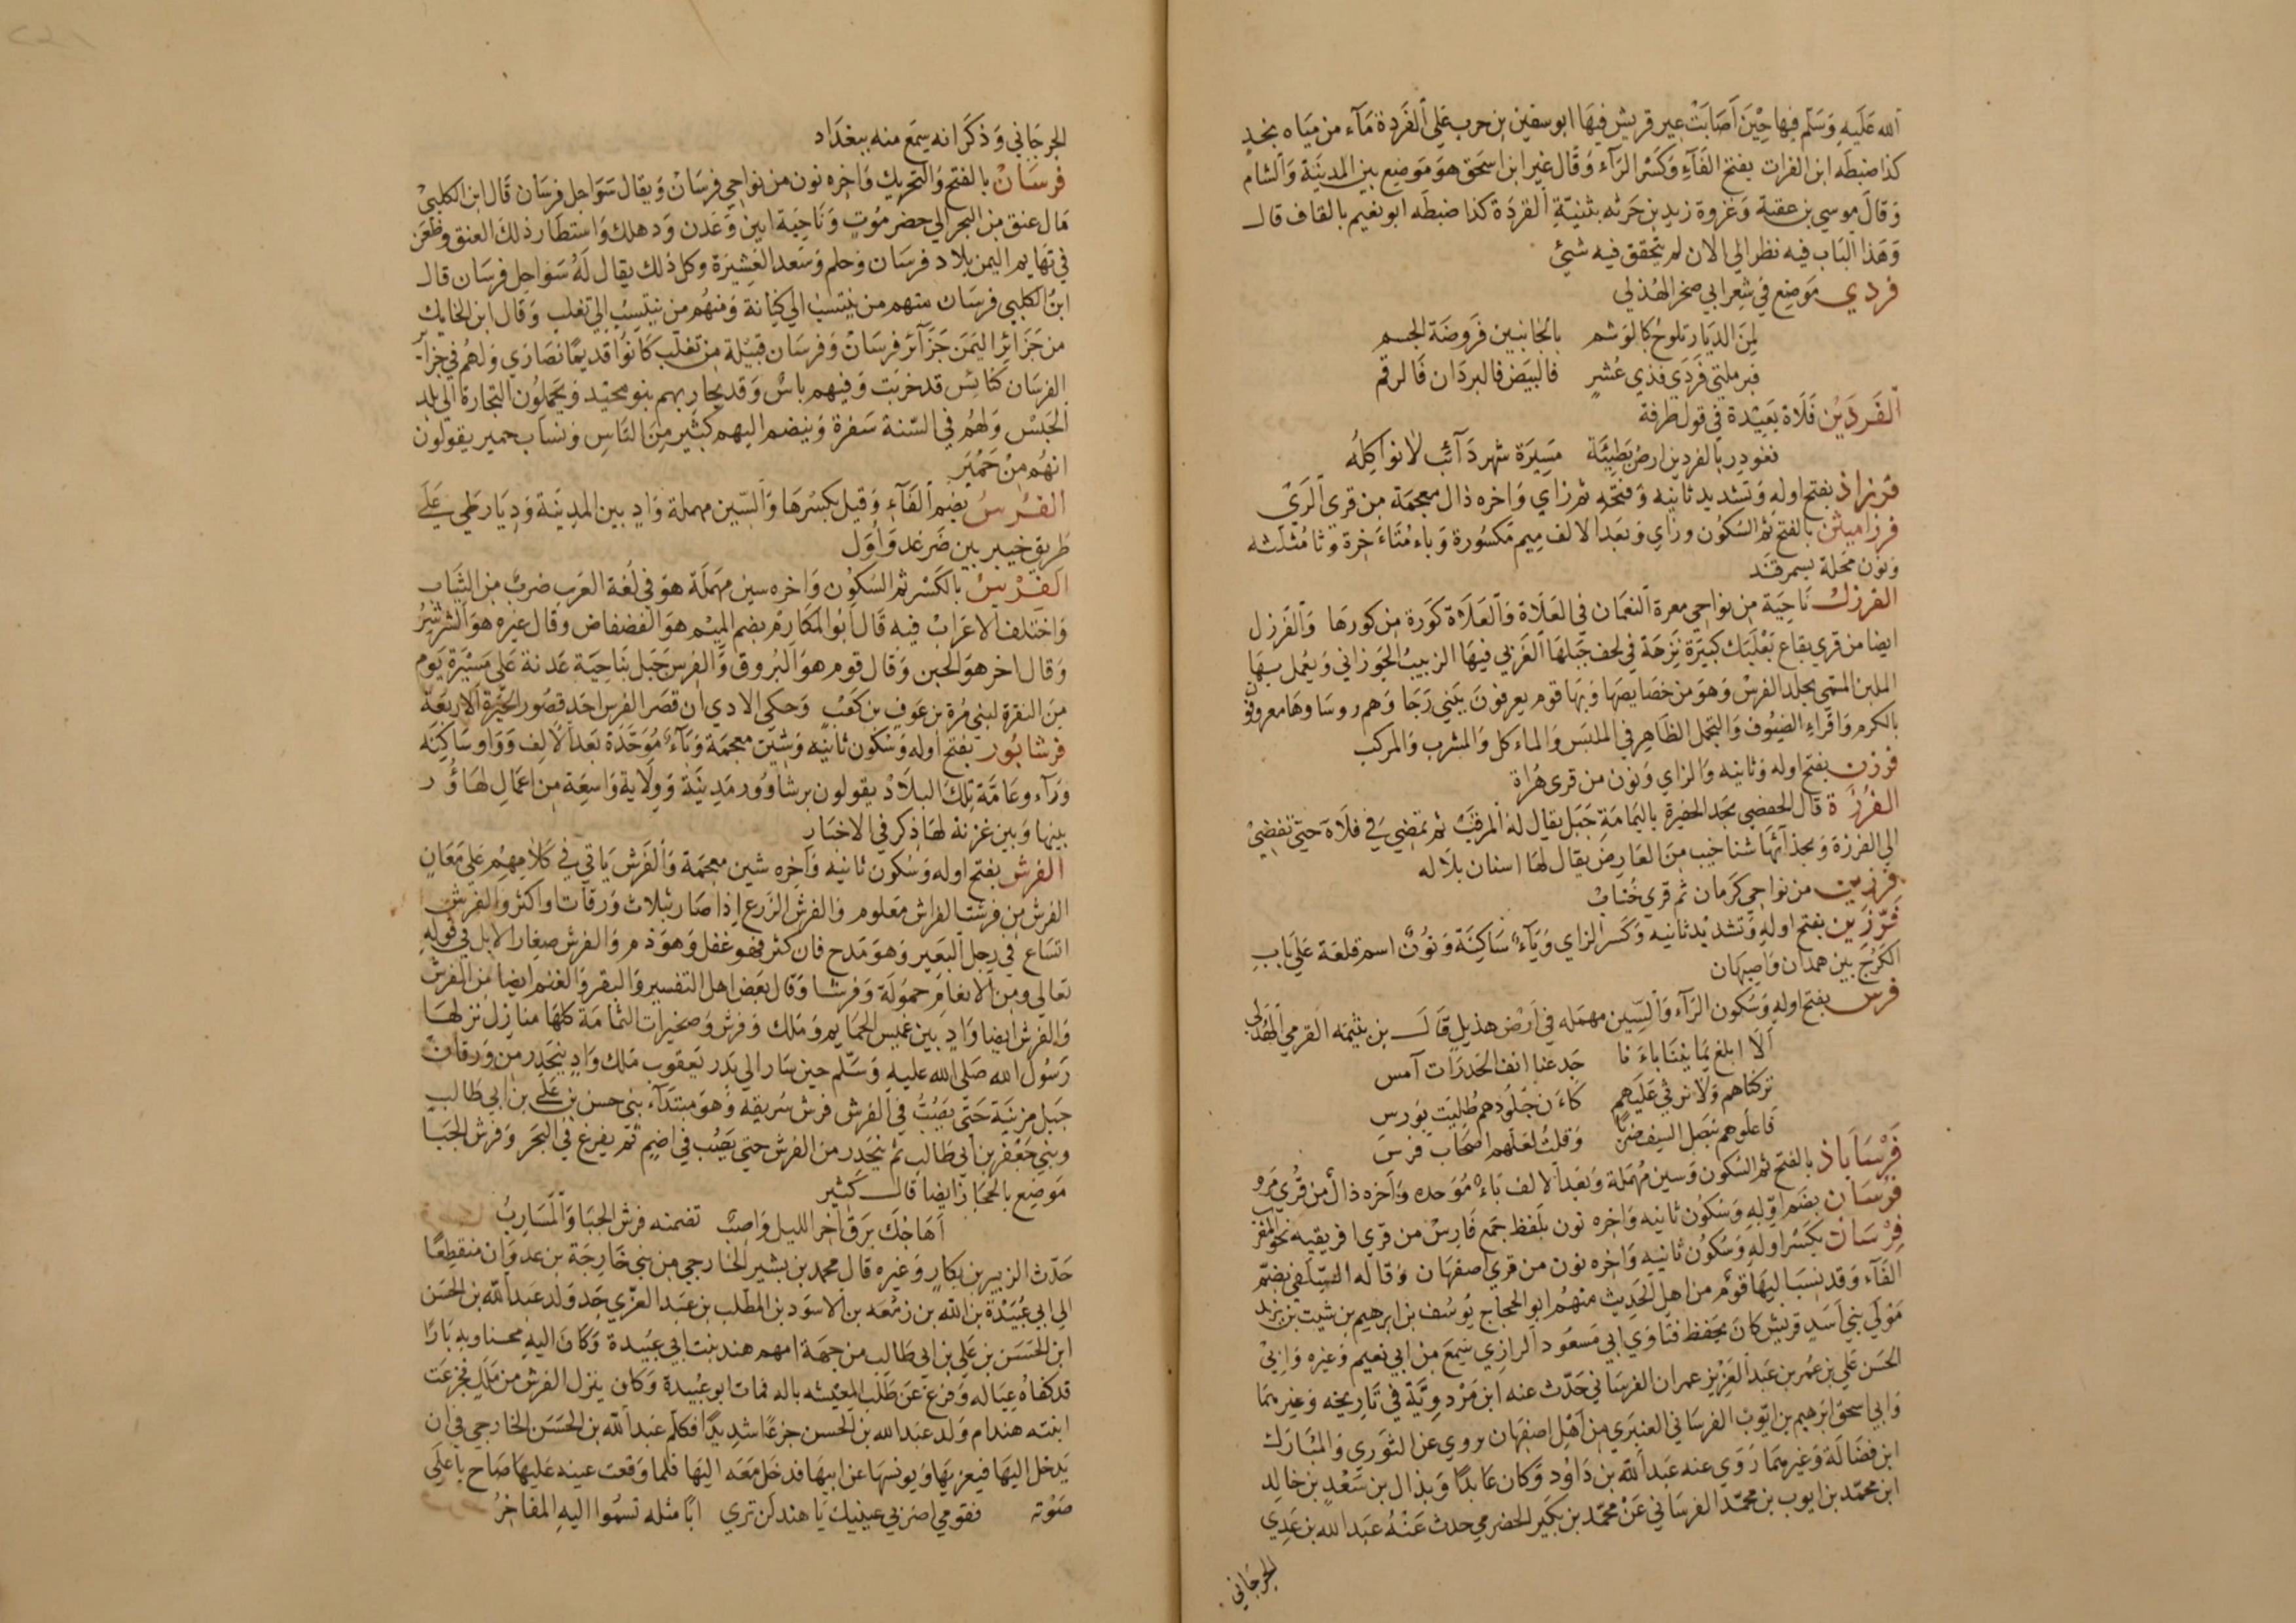 الله عَلَيهِ وَسَلّم فيها حِيْنَ أَصَابَتْ عير قريش فيهَا ابو سفين بن حرب عَلي الفَردة مَآء من ميَاه نجد
كذا ضبطَه ابن الفرات بفتح الفَآءِ وَكَسْر الرَآء وَقال غير ابن اسحق هوَ مَوضع بين المدينَة وَالشام
وَقالَ موسي بن عقبة وَغزوة زيد بن حَرثه بثنيّةِ القردَة كذا ضبطَه ابو نعيم بالقاف قال
وَهَذا البَاب فيه نظر الي الان لم يتحقق فيه شيئ
فردي مَوضع في شِعر ابي صخر الهُذلي
لمِنَ الديَار تلوحُ كالوَشم بالجانبين فَروضَة الجسم
فبرملتي فَردَي فذي عُشرٍ فالبيَض فالبردَان فَالرقم
الفَردَين فَلَاة بَعيدة في قول طَرفة
فغودر بالفردين ارض بَطِيّة مَسِيرَة شهر دَآئب لا نواكِلهُ
فرزاذ بفتح اوله وَتشديد ثانيه وَفتحه ثم زاي وَاخره ذال معجمَة من قري الريّ
فرزاميثن بالفتح ثم السكوُن وزاي وَبعَد الالف ميم مَكسُورة وَياء مُثنَاة اخرة وثا مُثلثه
وَنون محَلة بسمرقَند
الفرزل نَاحِيَة من نواحي معرة النعمان في العَلَاة وَالعَلَاة كوَرة من كورهَا وَالفَرزل
ايضا من قري بقاع بَعْلَبك كبيَرة نزهَة في لحف جَبَلهَا الغَربي فيهَا الزبيبُ الجَوزاني وَيعُمل بهَا
الملبن المسَمي بجلد الفرسْ وَهوَ من خصَايصهَا وَبهَا قوم يعرفون ببَني رَجَا وَهم روسَاوهَا معروفون
بالكرم وَاقراءِ الضيُوف وَالتجمل الظاهِر في الملبَس وَالماءكل وَالمشرب وَالمركب
فرزن بفتح اوله وَثانيه وَالزاي وَنون من قري هَراة
الفُرزَة قال الحفصي بجد الحفيرة باليمَامَة جَبَل يقال لهُ المرقبُ ثم تمضي في فلَاة حتى تفضيْ
الي الفرزة وَبحذآئهَا شناخيب من العَارض يقال لهَا اسنان بلاله
فرزين من نواحي كرَمان ثم قري خُنابْ
فَرّزين بفتح اوله وَتشديد ثانيه وَكسر الزاي وَيَآءٌ سَاكنَة وَنونٌ اسم قلعَة علي بَابِ
الكرَج بين همدان وَاصبَهان
فرس بفتح اوله وَسكون الرَآء وَالسّين مهمَله في اَرْض هذيل قَالَ بن بثينه القرمي الهُذلي
اَلَا ابلغ يمَانينَا باءَنا جَدعنا انف الحَدرَات آمس
تركناهم وَلَا نرثي عَلَيهم كاءَن جُلودَهم طليَت بوَرس
فاعلوهم بنصَل السيف ضربًا وَقلتُ لعَلهم اصحَاب فرسَ
فَرْسَابَاذ بالفتح ثم السُكون وَسين مُهمَلة وَبَعد الالف بَاءٌ مُوَحده وَاَخره ذالٌ من قُري مرو
فُرسَان بضم اوّلهِ وَسُكُون ثانيه وَاخره نون بلفظ جمع فَارس من قري افريقيه نحو المغرب
فِرْسَان بكسْر اوله وَسُكوُن ثانيه وَاخره نون من قري اصفهَان وَقاله السلَفي بضمّ
الفَآء وَقد نسَبَ اليهَا قومٌ من اهل الحَديث منهمُ ابو الحجاج يوسُف بن ابرهيم بن شيت بن يزيد
مَوْلي بني أسَد قريش كانَ يحَفظ فتَاوي ابي مَسعوُد الرازي سَمع من ابي نعيم وَغيره وَابيْ
الحَسَن علي بن عُمر بن عَبد العَزيز عمران الفرسَاني حَدّث عنه ابن مَرْدوِيَّة في تَاريخه وَغيرهمَا
وَابي اسحق ابرَهيم بن ايّوب الفرسَاني العنبَري من اَهْل اصبَهان يروي عن الثوَري وَالمبَارَك
ابن فضَالَة وَغيرهمَا رَوي عنه عَبد اللّه بن دَاوُد وَكان عَابدًا وَبذال بن سَعْد بن خالِد
ابن محمّد بن ايوب بن محمّد الفرسَاني عَنْ محمّد بن بكير الحضرمي حدث عَنْهُ عَبد الله بن عَدِي
الجرجاني
الجرجَاني وَذكرَ انه سمعَ منه ببغدَاد
فرسَانْ بالفتح وَالتحريك وَاخره نون من نواحي فرسَانْ وَيقال سَوَاحِل فرسَان قَال ابن الكلبيْ
مَال عنق من البحر الي حضر مَوُت وَنَاحِيَة ابين وَعَدن وَدهلك وَاستطَار ذلكَ العنق وطعَن
في تهَايم اليمن بلاد فرسَان وَحلم وَسَعد العَشيرَة وكل ذلك يقال لَهُ سَوَاحِل فرسَان قال
ابنُ الكلبي فرسَان منهم من ينتسب الي كنَانة وَمنهُم من ينتسِب الي تغلب وَقال ابن الحايك
من جَزَائر اليمَن جَزَآئر فرسَانْ وَفرسَان قبيلة من تغلب كَانوُا قديمًا نصَارَي وَلهُم في جزا-
الفرسَان كنَائس قد خربَت وَفيهم باسٌ وَقد يحَاربهم بنو مجَيد وَيحَملوُن التجارة الي بلد
الحَبسْ وَلهُم في السّنة سَفرة وَينضم اليهم كثير من النَاسِ وَنسابَ حمير يقولون
انهُم منْ حَمْيَر
الفُرسُ بضم الفَآءِ وَقيل بكسْرهَا وَالسّين مهملة وَادٍ بين المدينَة وَديَار طَي علي
طَريق خيبر بين ضَرغد وَأوَل
الفِرْسُ بالكَسْر ثم السكوُن وَاخره سين مهمَلَة هوَ في لُغة العَرب ضربٌ من النَبَات
وَاختلفَ الاعَرابْ فيه قَال ابُو المكَارم بضم الميْم هوَ القضقاض وقال غيره هوَ الشرشِرُ
وَقال اخر هوَ الحبن وَقال قوم هو البُروق وَالفرس جَبَل بنَاحِيَة عَدنة عَلي مَسْيَرة يَوم
من النقرة لبني مُرة بن عَوف بن كعَبٌ وَحكي الادي ان قصَر الفِرس احَد قصُور الحيَرة الاربعَة
فرشابُور بفتح اوله وَسْكون ثانيه وَشين معجمَة وَبَآءٌ مُوَحّدَة بَعد الالف وَوَاو سَاكِنَه
وَرآء وعَامَّة تلكَ البلَادْ يقولون برشاوُور مَدِينَة وَوِلَاية وَاسعَة من اعمَالِ لهَاوُور
بينهَا وَبين غزنة لهَا ذِكر في الاخبَار
الفرش بفتح اوله وَسُكون ثانيه وَاخره شين معجمَة وَالفَرش يَاتي في كلامهِم عَلي مَعَان
الفرش من فرشت الفراش مَعلوم وَالفرش الزرع اذا صَار بثلاث وَرقات وَاكثر وَالفرش
اتسَاع في رجل البَعيَر وَهوَ مَدح فان كثر فهو عَفَل وَهوَ ذم وَالفرش صغَار الابل في قوله
تعَالي وَمن الانعَامَ حموُلَة وَفرشا وَقال بعَض اهل التفسير وَالبقر وَالغنم ايضا من الفرش
وَالفرش ايضا وَادٍ بين غميس الحمَايم وَمَلك وَفرش وَصخيرات الثمَامَة كلهَا مَنازل نزلهَا
رَسُوُل الله صَلي الله عليه وَسَلّم حين سَار الي بَدر يَعقوب مَلك وَادٍ ينحَدر من وَرقان
جبَل مزينَة حَتى يَصُبُّ في الفَرش فرش سُويقه وَهوَ مبتَدَآء بني حسن بن علي بن ابي طَالب
وبني جَعْفَر بن ابي طَالب ثم ينحَدر من الفرش حتى يَصَب في اضم ثم يفرغ في البَحر وَفرش الجَبَا
مَوَضِع بالحجَاز ايضًا قال كَثير
أهَاجكَ بَرقٌ اخر الليل وَاصبٌ تضمنه فرش الجبَا وَالمَسَاربُ
حَدّث الزبير بن بكار وَغيره قال محمد بن بشير الخارجي من بني خَارجَة بن عدوَان منقطِعًا
الي ابي عُبَيْدة بن اللّه بن زمْعَه بن الاسوَد بن المطّلب بن عبَد العزّي جَد وَلد عبَد اللّه بن الحَسَن
ابن الحَسَن بن عَلي بن ابي طَالب من جهَة امهم هند بنت ابي عبَيدة وَكانَ اليه محسنا وبهِ بَارًا
قد كفاهُ عيَاله وَفرغ عَن طَلَب المعيْشه باله فمات ابو عُبيدة وَكان ينزل الفرش من ملل فجزعَت
ابنته هند ام وَلد عبَد الله بن الحسن جزعًا شديدًا فكلم عَبد اللّه بن الحَسَن الخارجي في ان
يَدخل اليهَا فيعزيهَا وَيونسهَا عن ابيهَا فدخَل مَعَه اليهَا فلما وَقعت عينه عَليهَا صَاح باعلي
صَوته فقومي اضربي عينيك يَا هند لَن تري ابًا مثله تسموُا اليهِ المفَاخِرُ